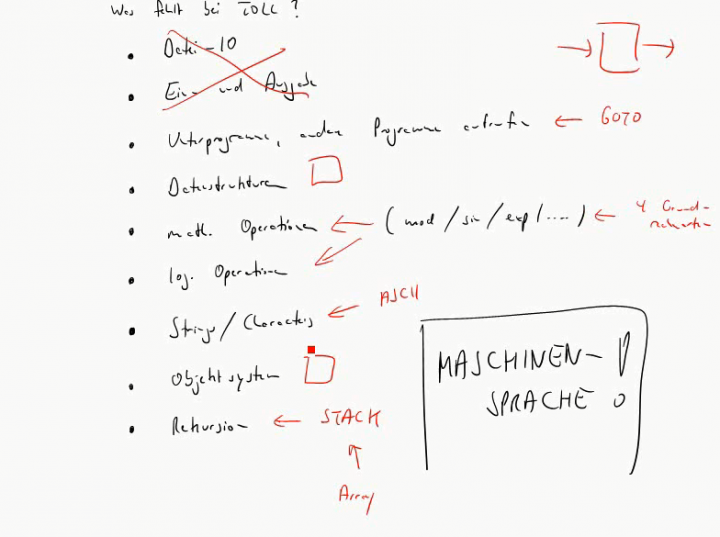 Was fehlt bei TOLL?
Datei-IO
Ein- und Ausgabe
Unterprogramme, andere Programme aufrufen ← GOTO
Datenstrukturen
math. Operationen ← (mod / sin / exp / ....) ← 4 Grund-
rechenarten
log. Operationen
Strings / Characters ← ASCII
Objektsystem
MASCHINEN-
SPRACHE !
Rekursion ← STACK
↑
Array